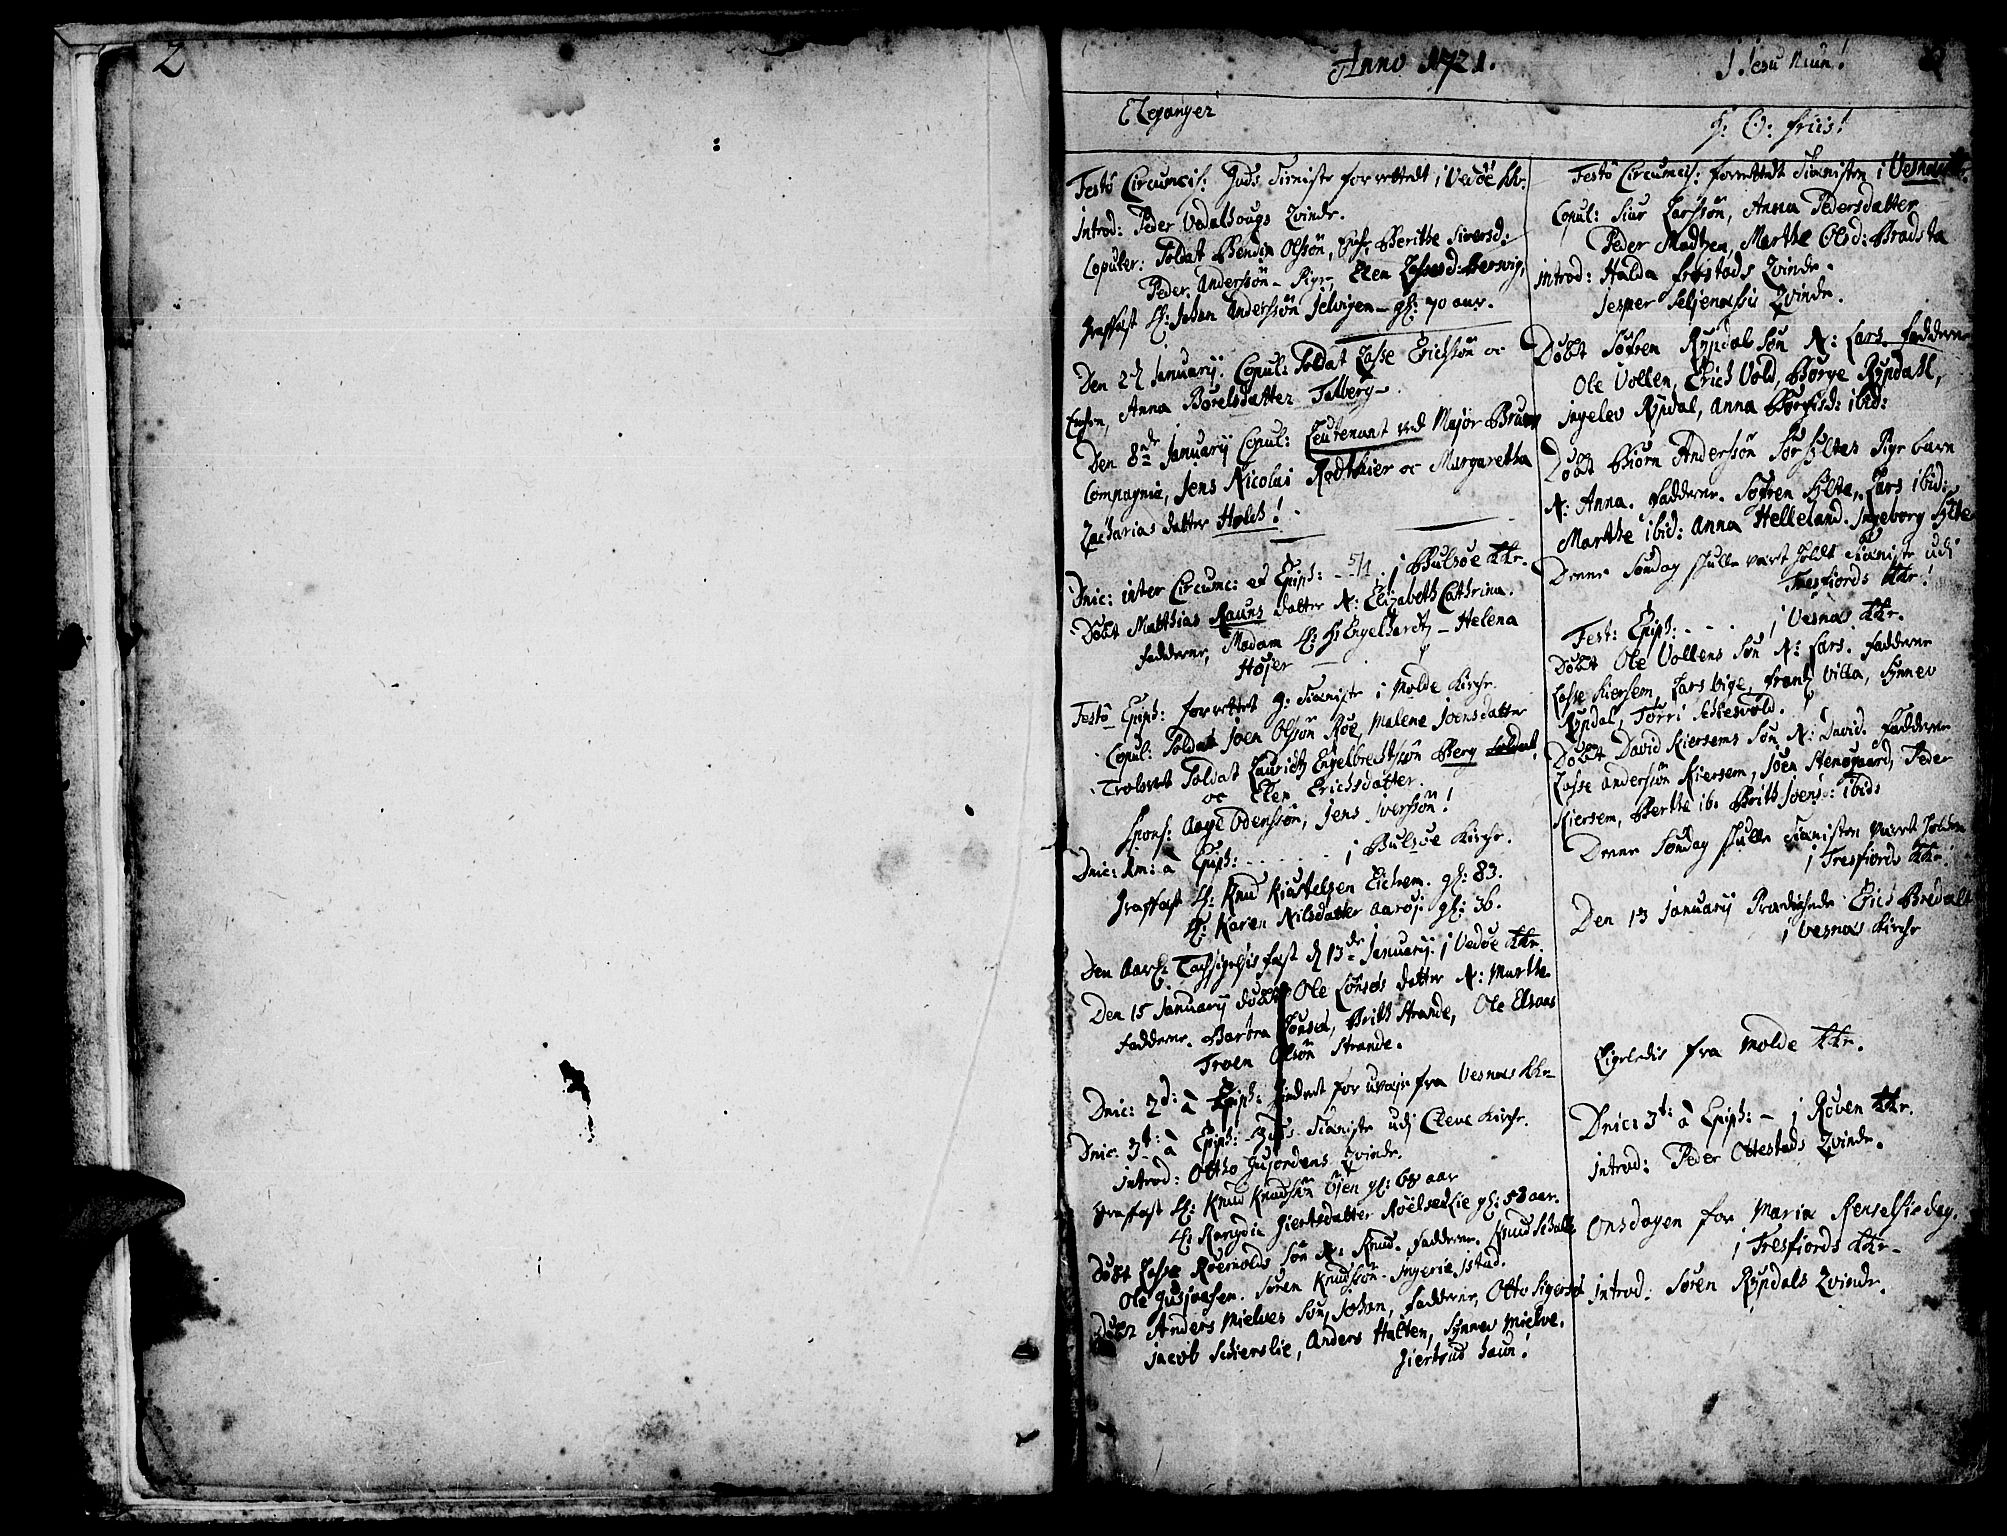 2
Anno 1721.
J Jesu Naun!
Clepanger
H: O: friis!
Festô Circumcis: Guds Tieniste forrettedt i Vedöe Kkr.
Introd: Peder Vedalhougs Qvinde.
Copuler: Soldat Bendix Olssön, Berithe Siversd:
Peder Anderssön - Pige, Elen Lassesd:
Johan Anderssön Jelvigen - gl: 70 aar.
Den 2 January. Copul: Soldat Lasse Erichssön oc
Anna Borelsdatter Talberg.
Den 8de January Copul: Leutenant ved Major Bruun
Compagnie, Jens Nicolai Rodtkier oc Margaretha
Zacharias datter Holch!
Dnic: inter Circumc: et Epiph: - 5/1. i Bulsöe Kkr.
Döbt Matthias Rauns datter N: Elizabeth Cathrina.
fadderne, Madam Sl: Hr Engelhardtz - Helena
Höjer
Festô Epiph: forrettet G: Tieniste i Molde Kirche.
Copul: Soldat Joen Olssön Röe, Malene Joensdatter
Trolovet Soldat Lauridtz Engelbrechtssön Berg
oc Elen Erichsdatter.
Spons: Aage Odenssön, Jens Iverssön!
Dnic: 1m: à Epiph: - - - - i Bulsöe Kirche.
Graffest Sl: Knud Kiöstelsen Eichrem. gl: 83.
Sl: Karen Nilsdatter Aaröj gl: 36.
Den Aarl: Tachsigelsis fest d 13de January. i Vedöe Kkr.
Den 15 January döbt Ole Lönsös datter N: Marthe
fadderne. Barbra Lönset, Brith Strande, Ole Elsaas
Troen Olssön Strande.
Dnic: 2d: à Epiph: hindret for uvejr fra Vesnæs Kkr
Dnic: 3t: à Epiph: Guds Tieniste udj Cleve Kirche.
introd: Ottho Gujordens Qvinde.
Graffest Sl: Knud Knudssön Öjen gl: 68 aar
Sl: Rangdie Giertsdatter Röelsetlie gl: 58 aar.
Döbt Lasse Röernolds sön N: Knud. fadderne. Knud
Ole Gusjoesen. Sören Knudssön. Ingerie Istad.
Döbt Anders Mielves sön, Johan, fadderne, Otto
Jacob Schierslie, Anders Halten, Synnev Mielve.
Giertrud Haun!
Festô Circumcis: forrettedt Tienisten i Vesnæs Kkr.
Copul: Siur Larssön, Anna Pedersdatter
Peder Madtzen, Marthe Olsd: Bradsta
introd: Halda frostads Qvinde.
Jesper Seljenæssis Qvinde.
Döbt Söfren Rypdals sön N: Lars. fadderne
Ole Vollen, Erich Vold, Börge Rypdahl,
Ingelev Rypdal, Anna ibid:
Döbt Biörn Anderssön Sör Pige barn
N: Anna. fadderne. Söfren Hjelte, Lars ibid:
Marthe ibid: Anna Helleland. Ingeborg
Denne Söndag skulle vært holdt Tieniste udi
Tresfiords Kkr!
Fest: Epiph: - - - i Vesnæs Kkr.
Döbt Ole Vollens sön N: Lars. fadderne
Lasse Kiersem, Lars Vige, frantz Villa, Synnev
Rypdal, Torri
Döbt David Kiersems sön N: David. fadderne
Lasse Anderssön Kiersem, Joen Stenogaard, Peder
Kiersem, Berthe ib. Brith Joens: ibid:
Denne Söndag skulle Tienisten vært holden
i Tresfiords Kkr.
Den 13 January Prædichede Erich Bredahl
i Vesnæs Kirche
Ligeledis fra Molde Kkr.
Dnic: 3t: à Epiph: - i Röven Kkr.
introd: Peder Ottestads Qvinde.
Onsdagen for Maria Renselsis dag.
i Tresfiords Kkr -
introd: Sören Rypdals Qvinde.